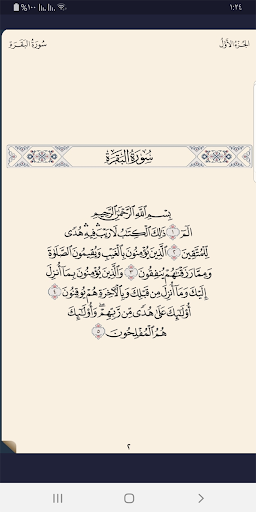 %١٠٠ ١:٢٤
الجزء الأول سورة البقرة
سورة البقرة
بِسْمِ ٱللَّهِ ٱلرَّحْمَٰنِ ٱلرَّحِيمِ
الٓمٓ ١ ذَٰلِكَ ٱلْكِتَٰبُ لَا رَيْبَۛ فِيهِۛ هُدًى
لِّلْمُتَّقِينَ ٢ ٱلَّذِينَ يُؤْمِنُونَ بِٱلْغَيْبِ وَيُقِيمُونَ ٱلصَّلَوٰةَ
وَمِمَّا رَزَقْنَٰهُمْ يُنفِقُونَ ٣ وَٱلَّذِينَ يُؤْمِنُونَ بِمَآ أُنزِلَ
إِلَيْكَ وَمَآ أُنزِلَ مِن قَبْلِكَ وَبِٱلْءَاخِرَةِ هُمْ يُوقِنُونَ ٤
أُو۟لَٰٓئِكَ عَلَىٰ هُدًى مِّن رَّبِّهِمْۖ وَأُو۟لَٰٓئِكَ
هُمُ ٱلْمُفْلِحُونَ ٥
٢